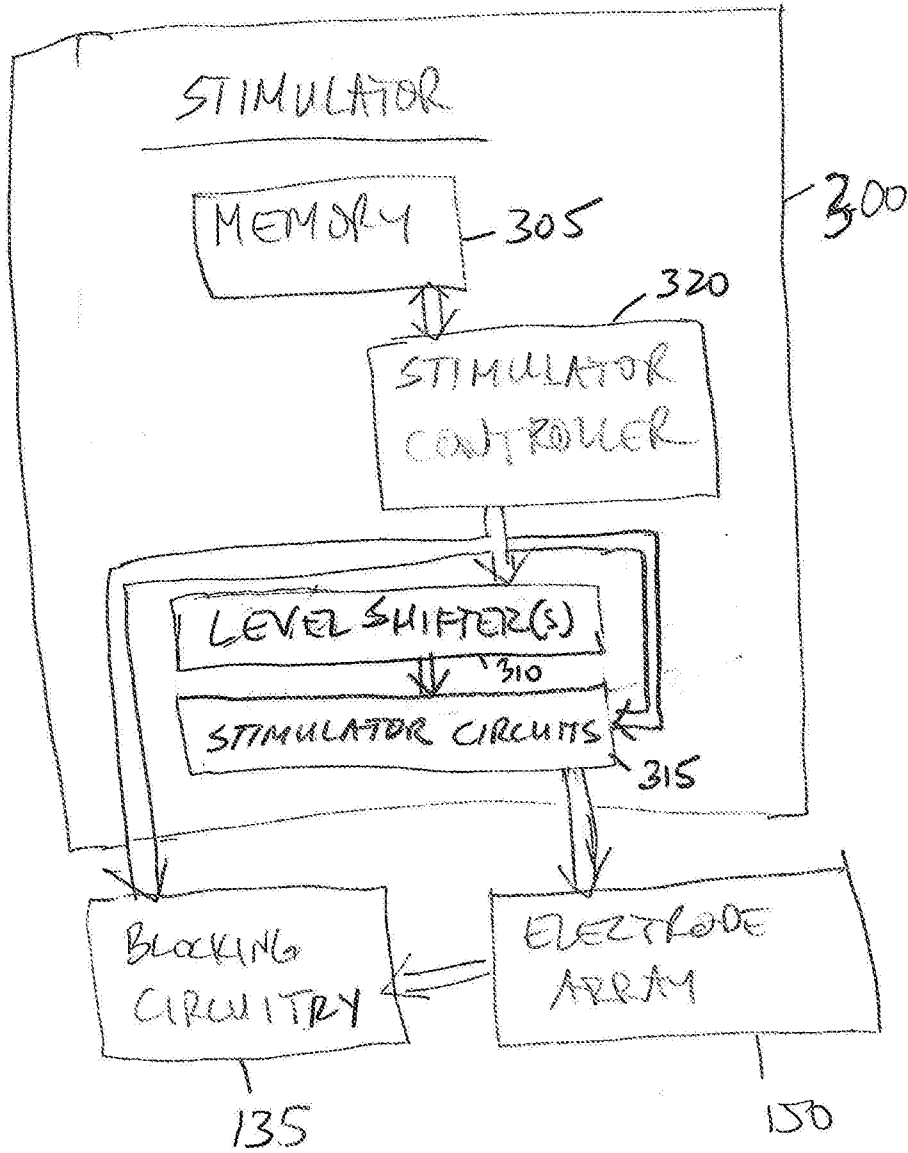 STIMULATOR
MEMORY
305
300
320
STIMULATOR
CONTROLLER
LEVEL SHIFTER(S)
310
STIMULATOR CIRCUITS
315
BLOCKING
CIRCUITRY
ELECTRODE
ARRAY
135
150